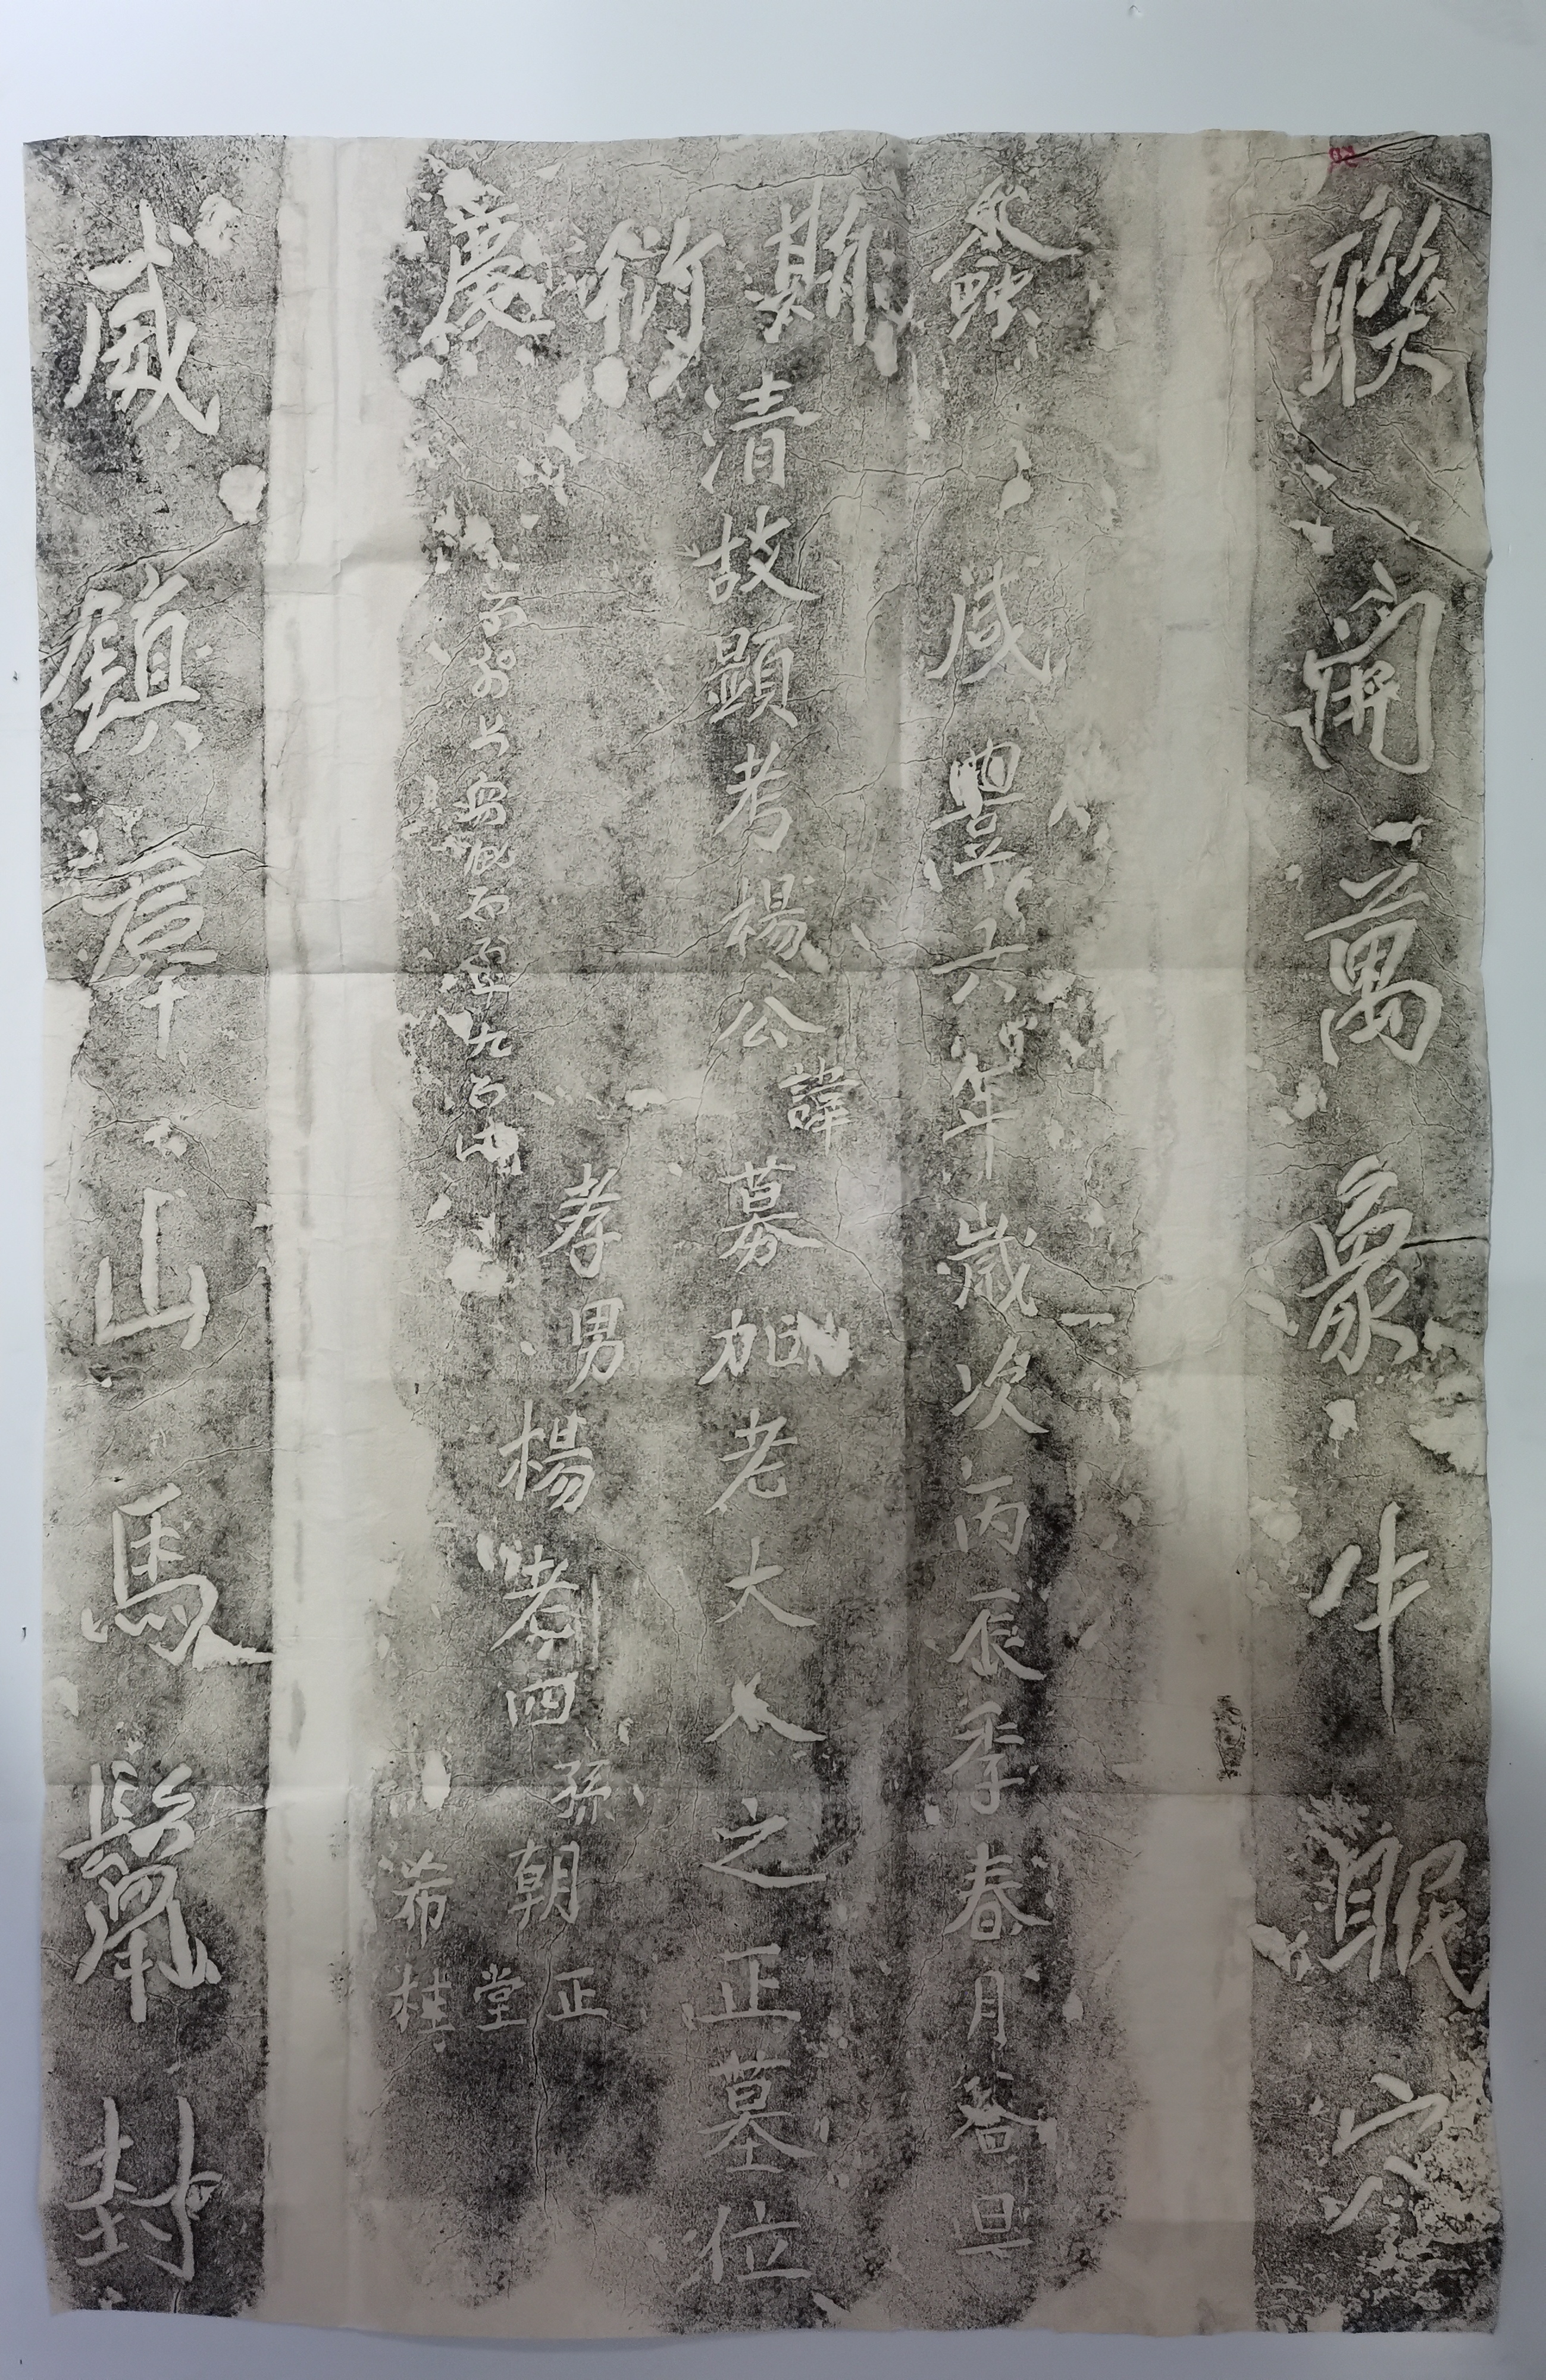 联開萬象牛眠穴
螽斯衍慶
咸豐六年歲次丙辰季春月谷旦
清故顯考楊公諱募加老大人之正墓位
孝男楊老四
孫朝正
堂
希桂
威鎮羣山馬鬣封